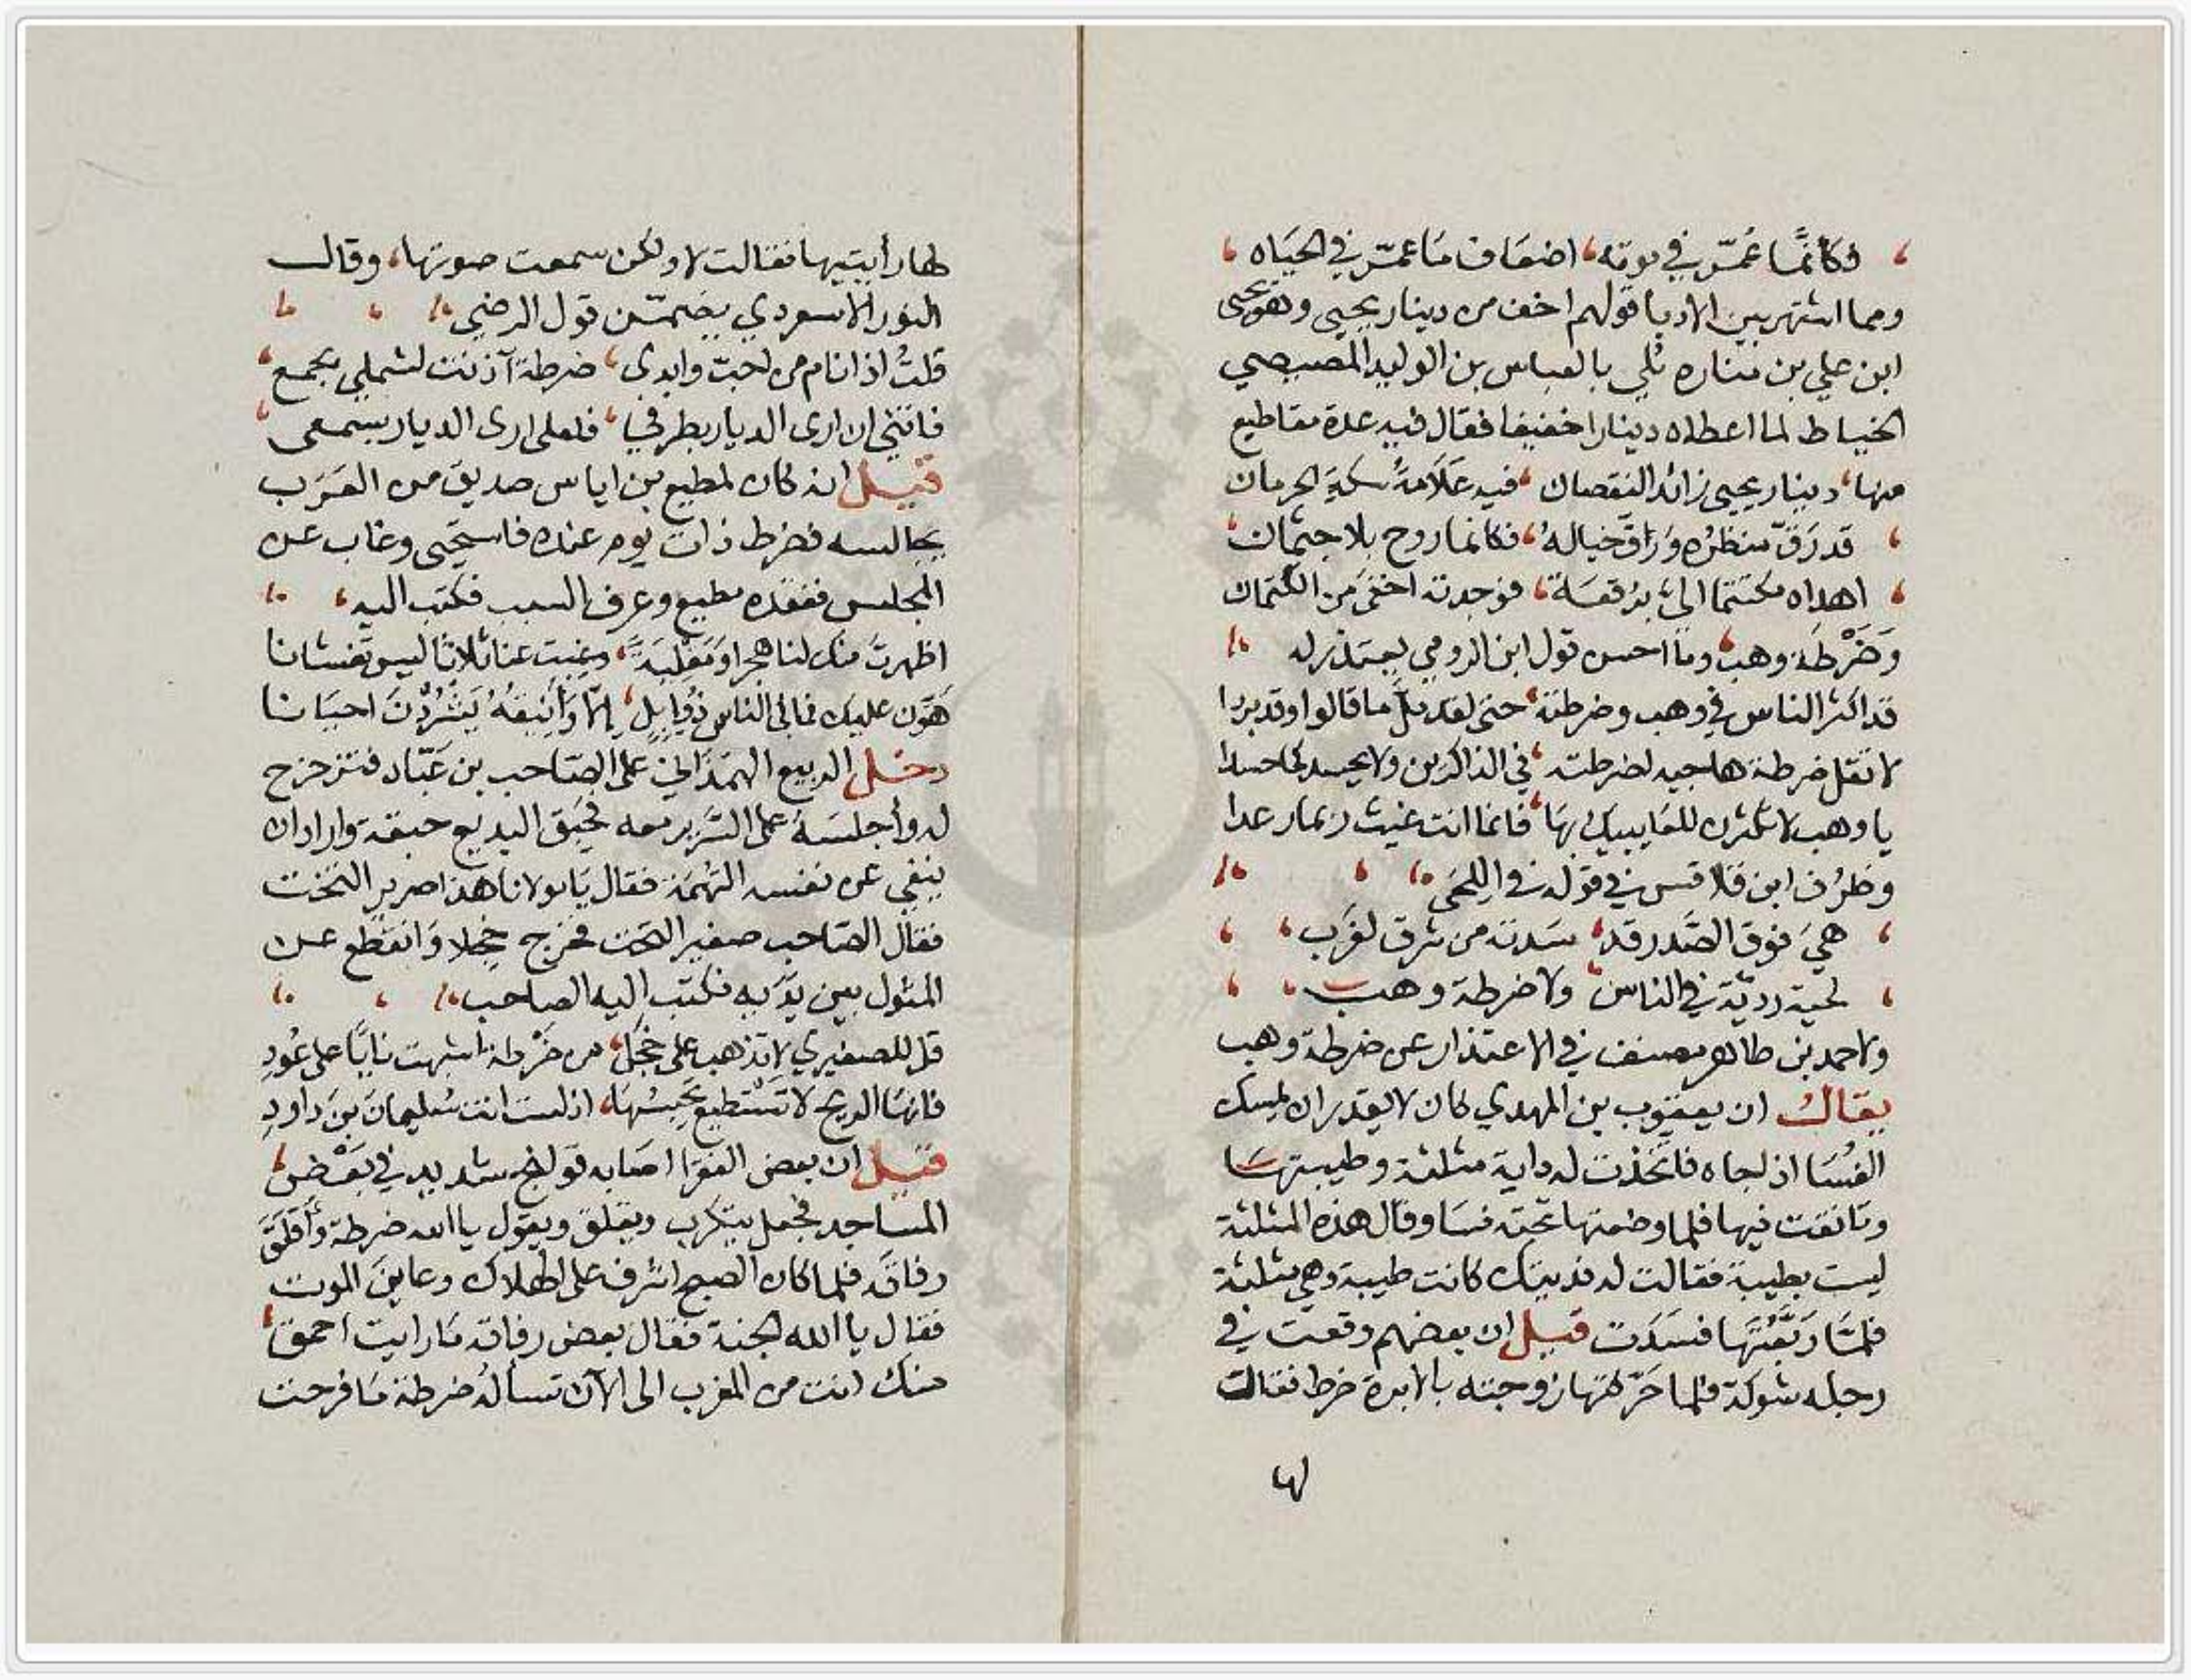 فكأنما عُمّر في موته، اضعاف ما عمّر في الحياه
ومما اشتهر بين الادبا قولهم اخف من دينار يحيى وهو يحيى
ابن علي بن مناره بُلي بالعباس بن الوليد المصيصي
الخياط لما اعطاه دينارا خفيفا فقال فيه عدة مقاطيع
منها، دينار يحيى زائد النقصان، فيه علامة سكة الحرمان
قد رَقّ منظره وَراقَ خياله، فكانما روح بلا جثمان
اهداه مكتتما اليّ برقعة، فوجدته اخفى من الكتمان
وَضَرْطة وهب، وما احسن قول ابن الرومي يعتذر له
قد اكثر الناس في وهب وضرطته، حتى لقد ملّ ما قالوا وقد بردا
لا تقل ضرطة هاجيه لضرطته، في الذاكرين ولا يحسد كما حسدا
يا وهب لا تكترث للعايبيك بها، فانما انت غيث ربما رعدا
وظرُف ابن قلاقس في قوله في اللحى
هيَ فوق الصَّدر قد، سَدته من شرق لغَرب
لحية رديّة في الناس، ولا ضرطة وهب
ولاحمد بن طاهر مصنف في الاعتذار عن ضرطة وهب
يقال ان يعقوب بن المهدي كان لا يقدر ان يمسك
الفُسَا اذ لجاه فاتخذت له داية مثلثة وطيبتها
وتانقت فيها فلما وضعتها تحته فسا وقال هذه المثلثة
ليست بطيبة فقالت له فديتك كانت طيبة وهي مثلثة
فلمّا رَبَّعْتَها فسَدَت قيل ان بعضهم وقعت في
رجله شوكة فلما حرّكتها زوجته بالابرة ضرط فقالت
لها
لها رأيتيها فقالت لا ولكن سمعت صوتها، وقال
النور الاسعردي يضمّن قول الرضي
قلتُ اذ انام من احبّ وابدى، ضرطة آذنت لشملي بجمع
فاتني ان ارى الديار بطرفي، فلعلي ارى الديار بسمعي
قيل انه كان لمطيع بن اياس صديق من العَرَب
يجالسه فضرط ذات يوم عنده فاستحيى وغاب عن
المجلس ففقده مطيع وعرف السبب فكتب اليه،
اظهرتَ منك لنا هجرا وَمَقْلِيَة، وغبت عنا ثلاثا ليس تغشانا
هَوّن عليك فما في الناس ذُو إِبِلٍ، إلّا وَأَيْنُقُهُ يَشْرُدْنَ احيانا
دخل البديع الهمذاني على الصّاحب بن عَبّاد فتزحزح
له وأجلسَهُ على السَّرير معه فحبَق البديع حبقة واراد ان
ينفي عن نفسه التهمة فقال يا مولانا هذا صرير التخت
فقال الصّاحب صفير التحت فخرج خجلا وانقطع عن
المثول بين يدَيه فكتب اليه الصاحب
قل للصفيري لا تذهب على خجل، من ضَرْطة اشبهت نايًا على عُودِ
فانها الريح لا تستطيع تحبسُها، اذ لست انت سُليمانَ بنَ داودِ
قيل ان بعض الفقرا اصابه قولنج شديد في بَعْض
المساجد فجعل يتكرب ويقلق ويقول يا الله ضرطة وأقلق
رفاقه فلما كان الصبح اشرف على الهلاك وعاين الموت
فقال يا الله الجنة فقال بعض رفاقه ما رايت احمق
منك انت من المغرب الى الآن تسأله ضرطة ما فرحت